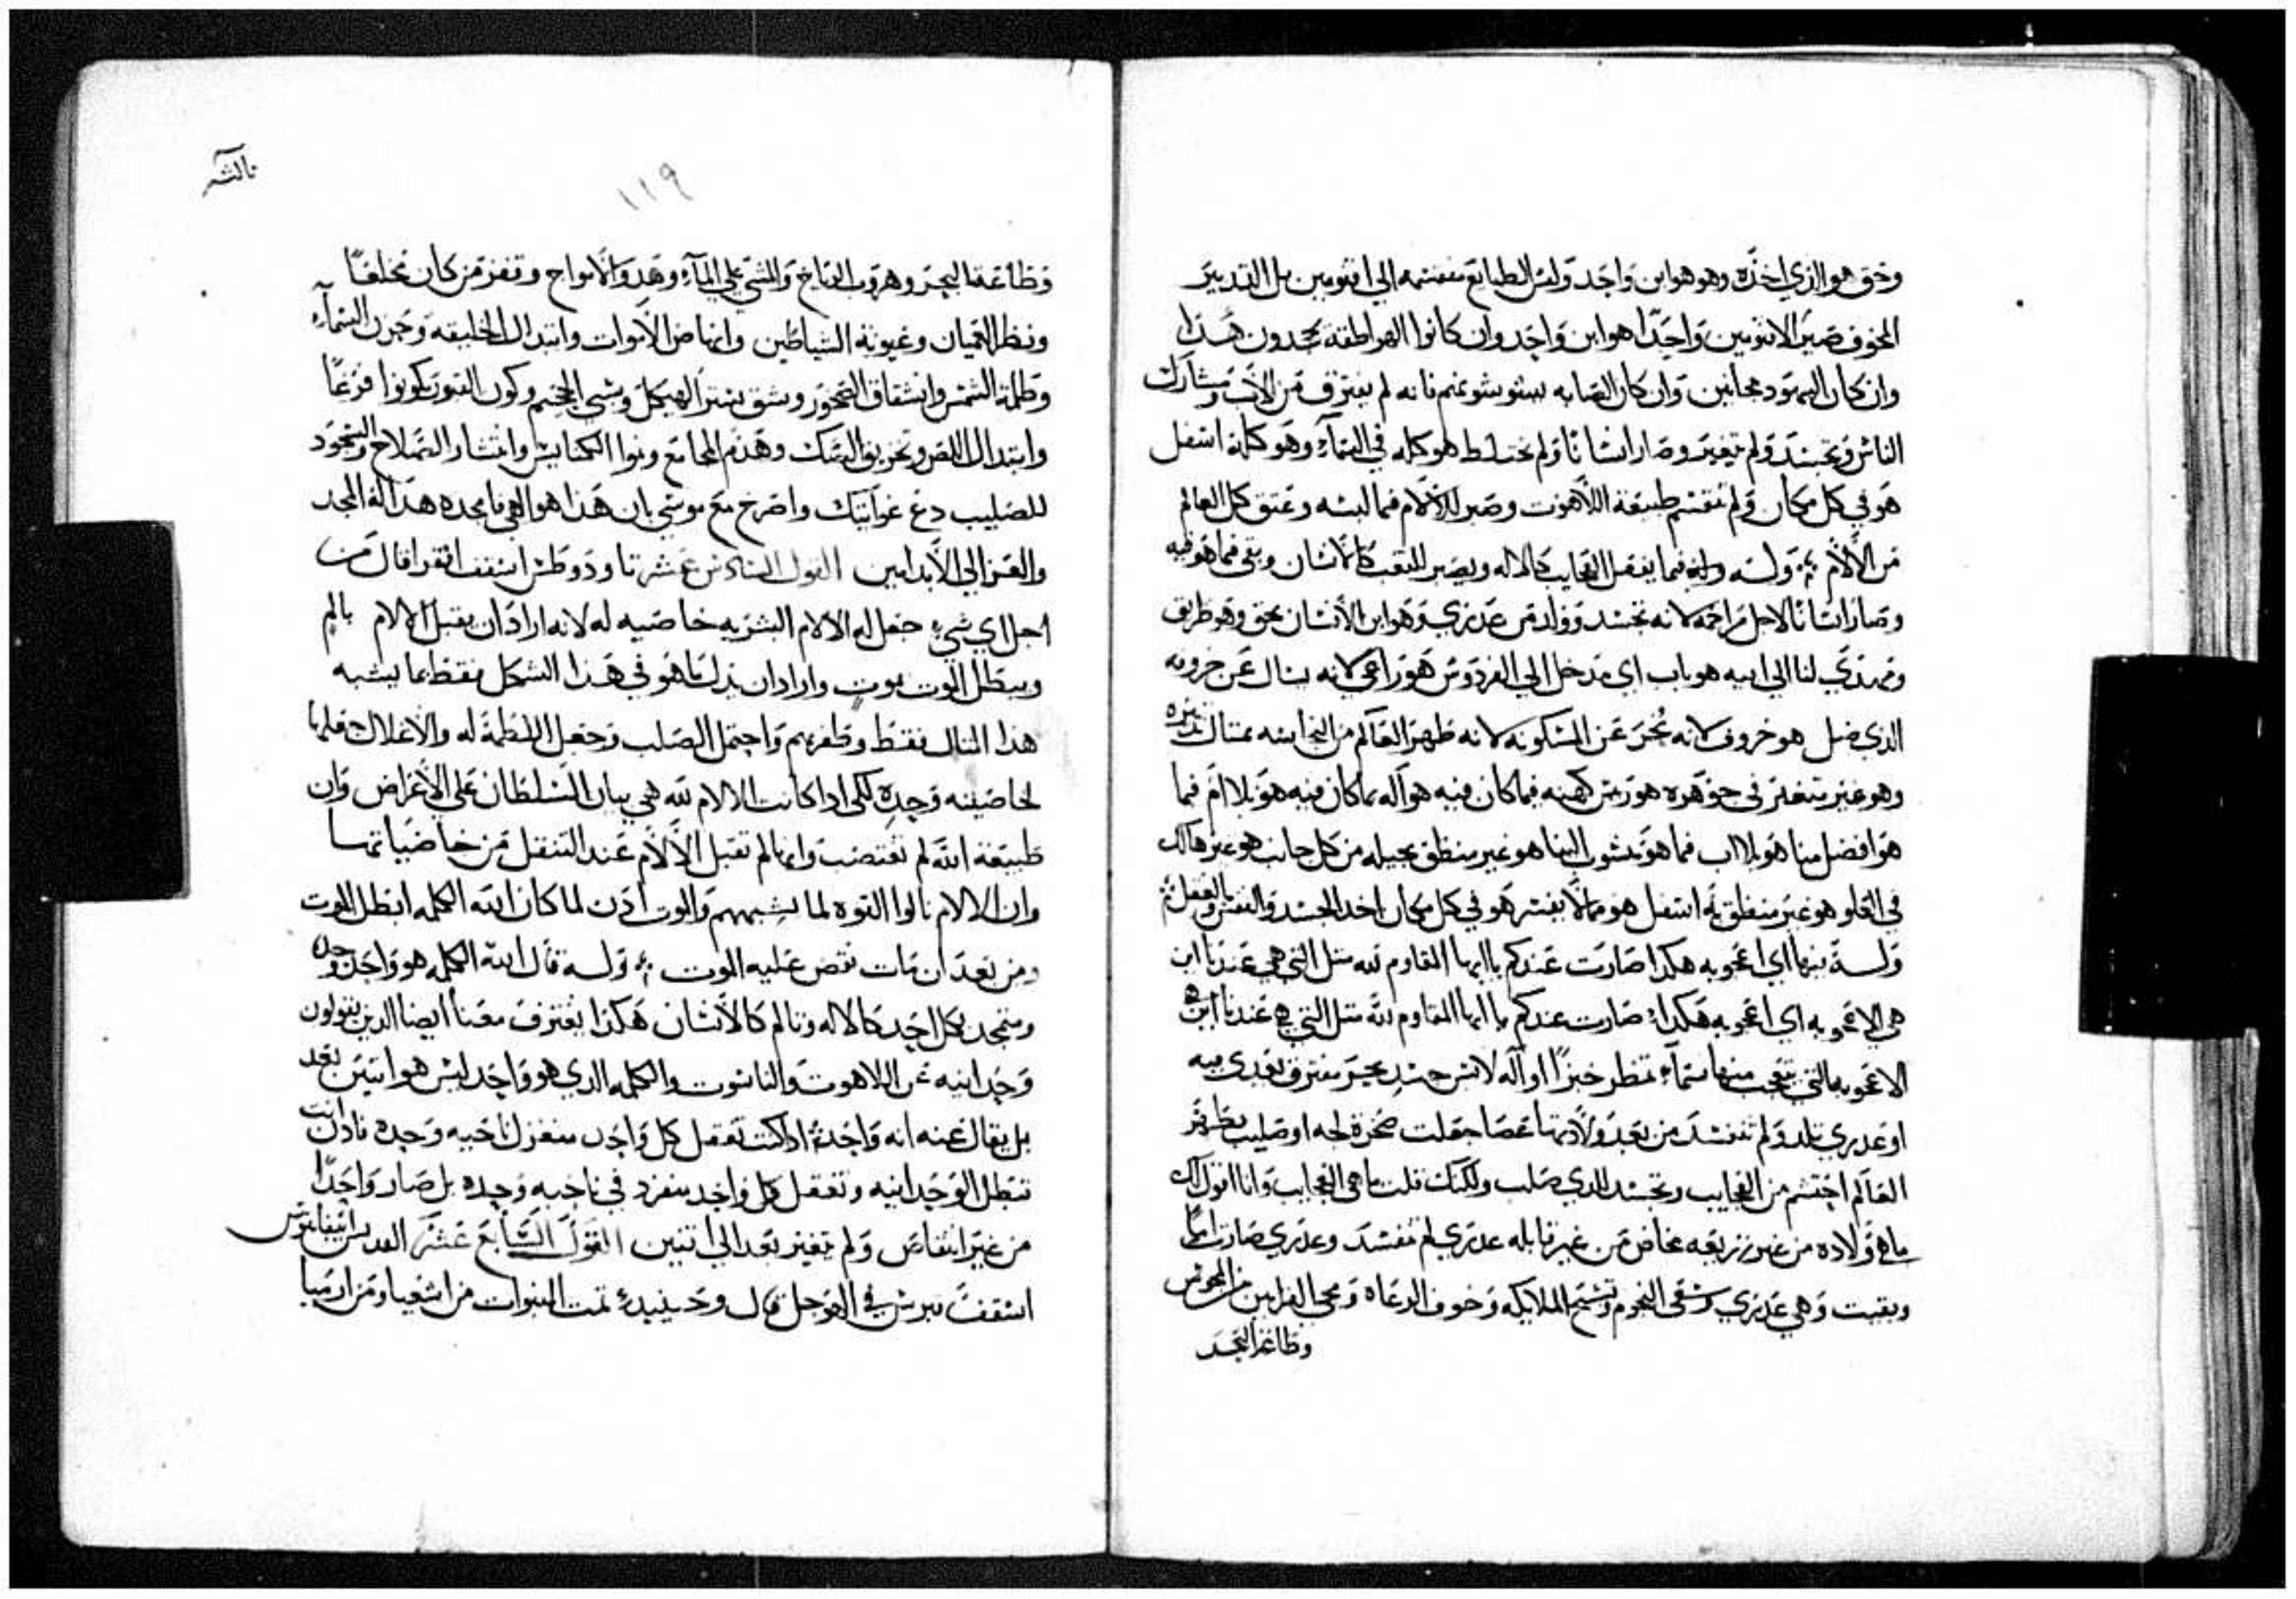 وحق هو الذي اخذه وهو هو ابن واحد وليس الطبايع منقسمه الي اقنومين بل التدبير
المخوف صير الاقنومين واحدًا هو ابن واحد وان كانوا الهراطقه يجدون هذا
وان كان اليهود مجانين وان كان الصابه فانه لم يفترق من الاب وشارك
الناس وتجسد ولم يتغير وصار انسانًا ولم يختلط هو كله في السمآء وهو كله اسفل
هو في كل مكان ولم تنقسم طبيعة اللاهوت وصبر للالام فيما لبسه وعتق كل العالم
من الالام وله وايضا فيما يفعل العجايب كالاله ويصبر للتعب كالانسان وبقي فيما هو فيه
وصار انسانًا لاجل مراحمه لانه تجسد وولد من عذري وهو ابن الانسان بحق وهو طريق
ومهدي لنا الي ابيه هو باب اي مدخل الي الفردوس هو راعي لانه يسال عن خروفه
الذي ضل هو خروف لانه نُحر عن المسكونه لانه طهر العالم من النجاسه
وهو غير متغير في جوهره هو ريس كهنه فيما كان فيه هو اله بما كان فيه هو بلا ام فيما
هو افضل منا هو بلا اب فيما هو منسوب الينا هو غير منطق بجيله من كل جانب هو غير هالك
في العلو هو غير منطلق به اسفل هو مما لا يفسر هو في كل مكان اخد الجسد والنفس والعقل
وله ايضا اي اعجوبه هكدا صارت عندكم يا ايها المقاوم لله مثل التي هي عندنا اين
هي الاعجوبه اي اعجوبه هكدا صارت عندكم يا ايها المقاوم لله مثل التي هي عندنا اين هي
الاعجوبه التي تتعجب منها سمآء تمطر خبزًا او آله لابس جسد بغير مفترق
او عدري تلد ولم تنفسد من بعد ولادتها عصا جعلت صخرة لجه او صليب يطهر
العالم احتشم من العجايب وتجسد للذي صلب ولكنك قلت ما هي العجايب وانا اقول لك
ما هي ولاده من غير زريعه مخاض من غير قابله عدري لم تفسد وعدري صارت امًا
وبقيت وهي عدري وسعي النجوم وتسبيح الملايكه وخوف الرعاه ومجي القرابين من المجوس
وطاعة البحر
١١٩
وطاعة البحر وهروب الرياح والمشي علي المآء وهدو الامواج وتفزمن كان مخلفًا
ونظر العميان وغيوبة الشياطين وانهاض الاموات وابتدال الخليقه وحزن السمآء
وظلمة الشمس وانشقاق الصخور وشق ستر الهيكل وسبي الجحيم وكون القبور يكونوا فزعًا
وابتدال اللص وتخريق الصك وهدم المجامع وبنوا الكنايس وانتشار الصلاح والسجود
للصليب دع غوايتك واصرخ مع موسي بان هذا هو الهي فامجده هذا له المجد
والعز الي الابد امين القول السادس عشر تاودوطس اسقف انقرا قال من
اجل اي شيء جعل له الالام البشريه خاصيه له لانه اراد ان يقبل الالام بالم
ويبطل الموت بموت واراد ان يدل ما هو في هذا الشكل فقط بما يشبه
هذا المثال فقط وظفر بهم واحتمل الصلب وجعل اللطمة له والاغلال جعلها
لخاصيته وحده لكي ادا كانت الالام لله هي بيان السلطان علي الاعراض وان
طبيعة الله لم تغتصب وانها لم تقبل الالام عند التنقل من خاصياتها
وان الالام نالوا القوه لما يشبههم والموت اذن لما كان الله الكلمه ابطل الموت
ومن بعد ان مات نقض عليه الموت وله قال الله الكلمه هو واحد وحده
ومتجد بكل احد كالاله وتالم كالانسان هكذا يعترف معنا ايضا الذين يقولون
وحدانيه من اللاهوت والناسوت والكلمه الدي هو واحد ليس هو اتنين بعد
بل يقال عنه انه واحد فاداكنت تعقل كل واحد منعزل ناحيه وحده فادن انت
تبطل الوحدانيه وتعقل كل واحد منفرد في ناحيه وحده بل صار واحدًا
من غير انتقاص ولم يتغير بعد الي اتنين القول السابع عشر القديس ابيفانيوس
اسقف قبرس في الهوجل قال وحينيد تمت النبوات من اشعيا ومن ارميا